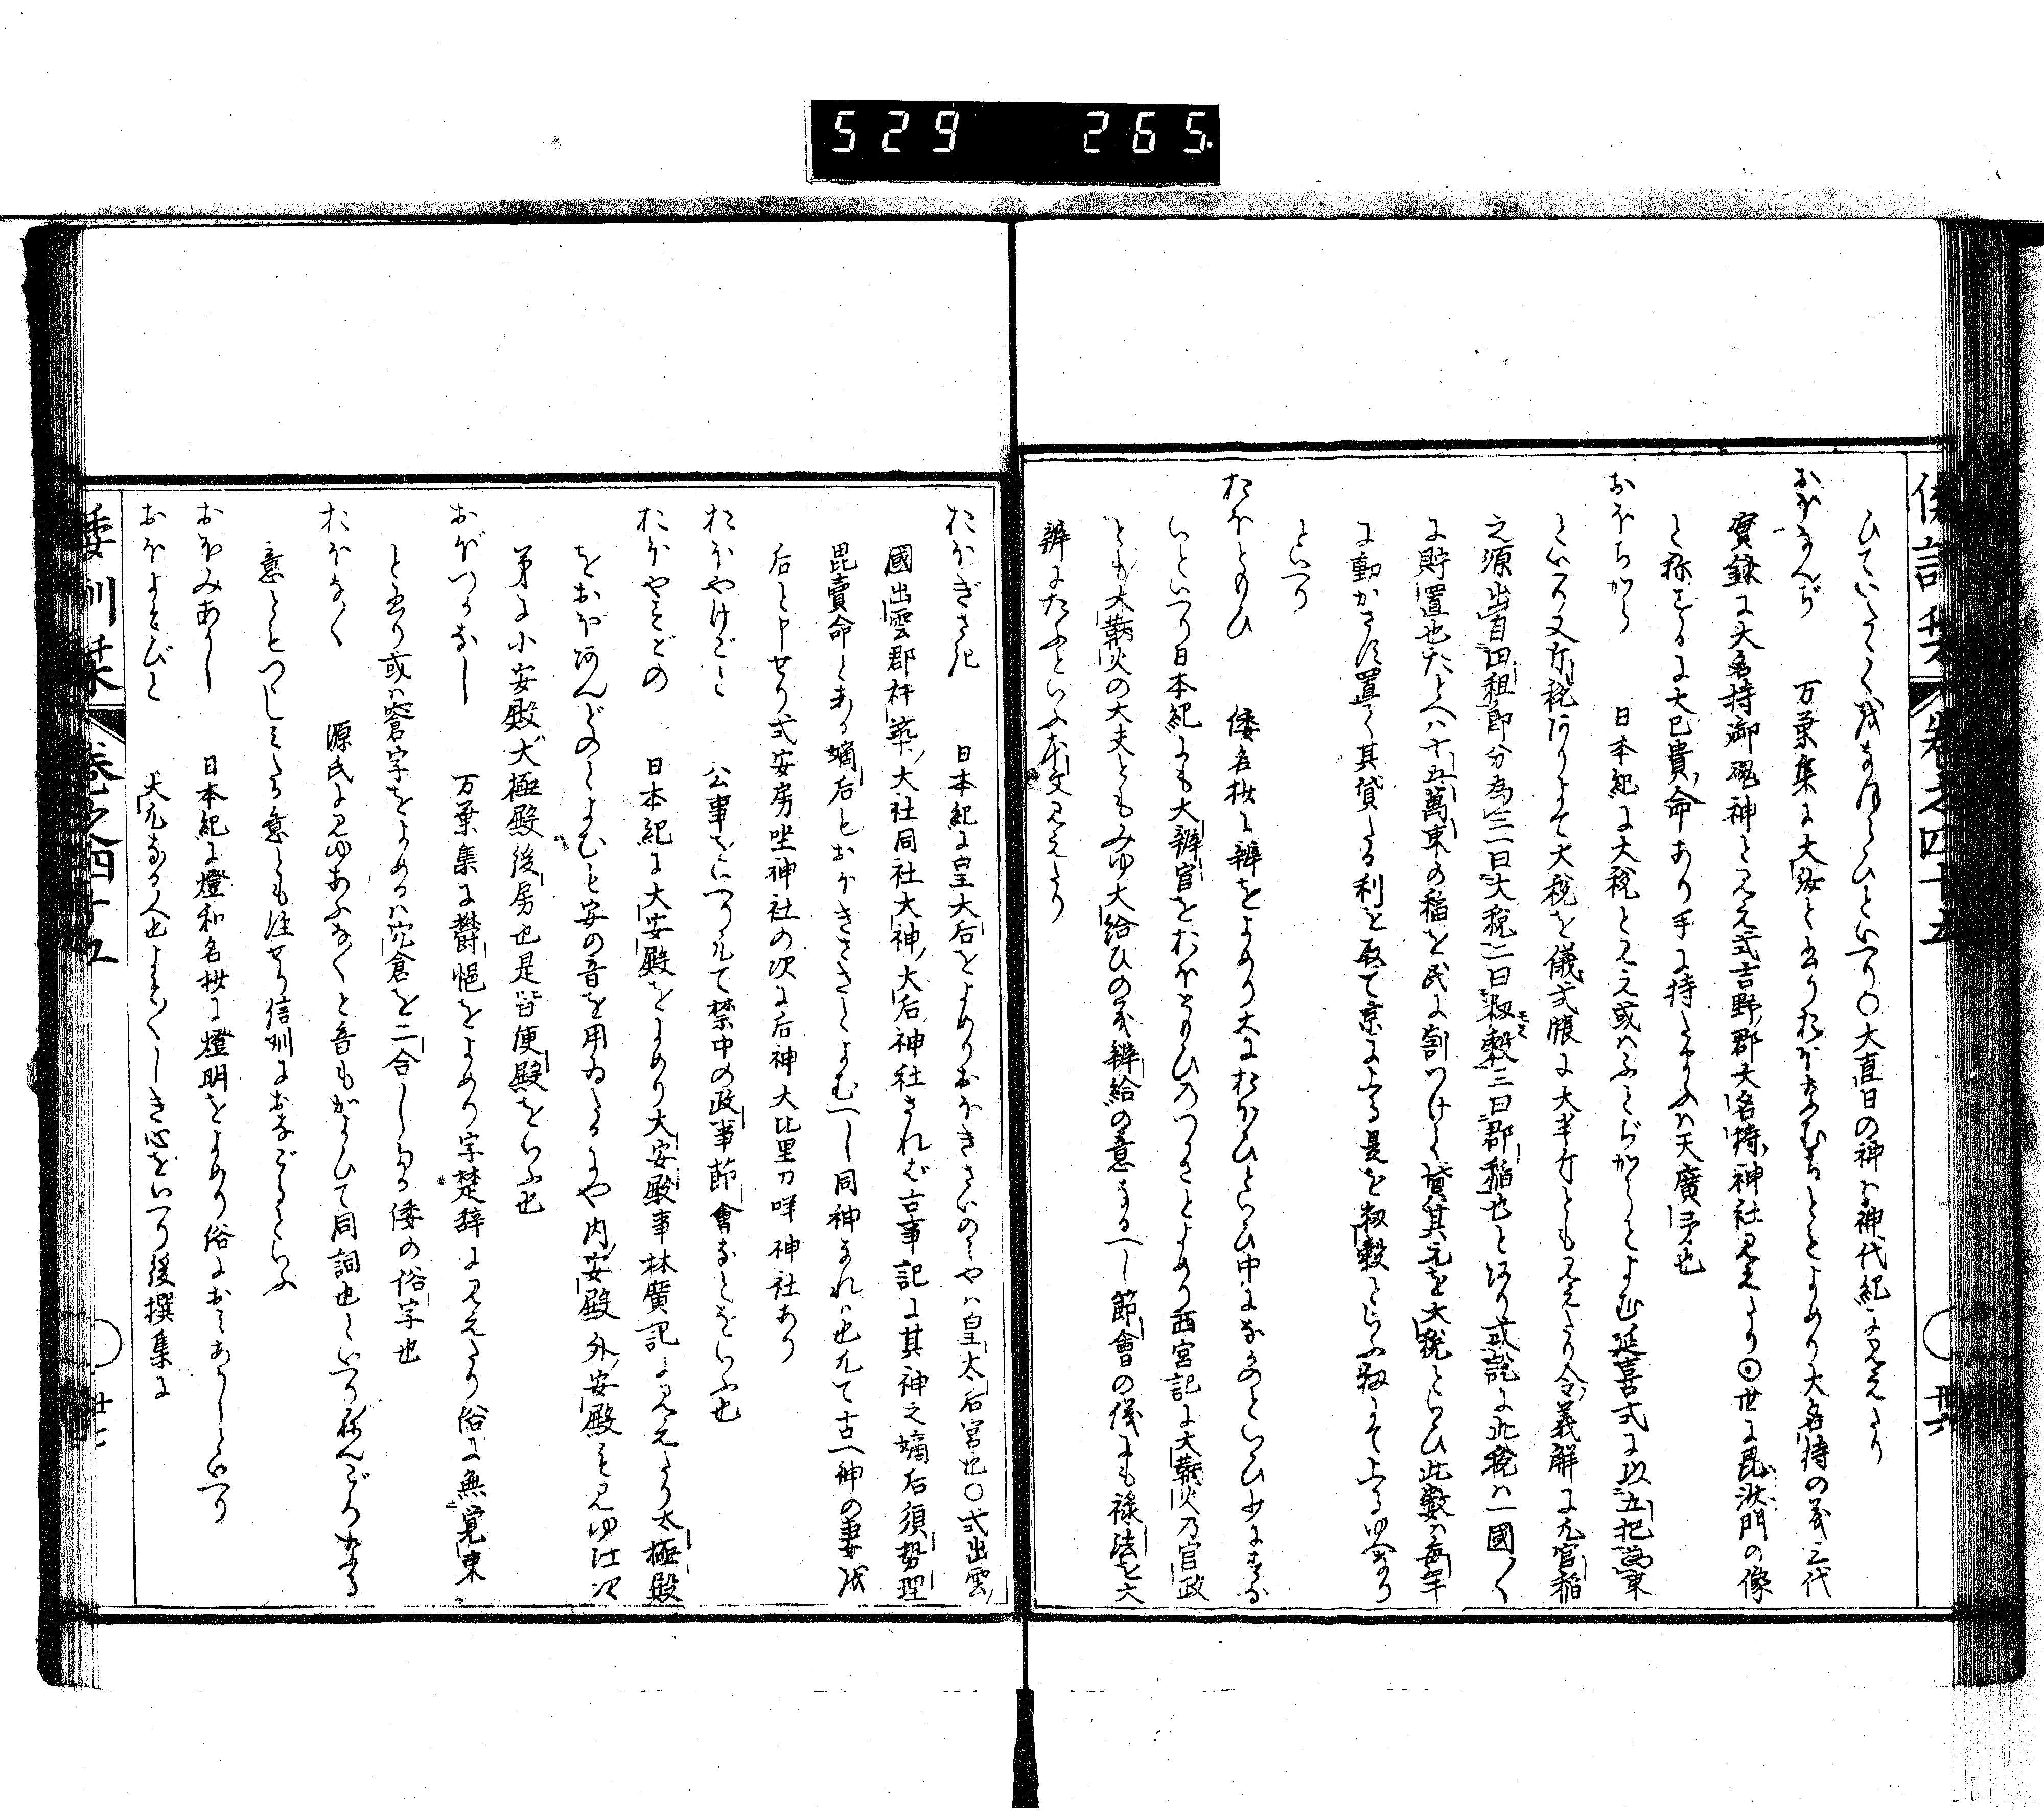 529 265
倭訓栞 卷之四十五 卅六
ひていたく成なほらひといへり〇大直日の神は神代紀に見えたり
おほなんぢ 万葉集に大汝と書りおほなむちともよめり大名持の義三代
實録に大名持御魂神と見え式吉野郡大名持神社見えたり〇世に毘沙門の像
と称するに大已貴命あり手に持たまふは天廣矛也
おほちから 日本紀に大税と見え或はふとぢからとよむ延喜式に以五把為束
といへり又斤税ありよて大税を儀式帳に大半斤とも見えたり令義解に元官稲
之源出自田租即分為三一曰大税二曰籾穀三曰郡稲也とあり或説に此税は一國〱
に貯置也たとへは十五萬束の稲を民に割つけて貸其元を大税といひ此數は毎年
に動かさす置て其貸たる利を取て京に上る是を籾穀といふ籾にて上るゆゑなり
といへり
おほともひ 倭名抄に辨をよめり大におほひといひ中になかのといひ少にすな
いといへり日本紀にも大辨官をおほともひのつかさとよめり西宮記に大鞆火乃官政
とも大鞆火の大夫ともみゆ大給ひの義辨給の意なるへし節會の儀にも禄法を大
辨にたふといふ本文見えたり
おほぎさき 日本紀に皇大后をよめりおほきさいのみやは皇太后宮也〇式出雲
國出雲郡杵築大社同社大神大后神社されば古事記に其神之嫡后須勢理
毘賣命とある嫡后もおほきさきとよむへし同神なれは也凡て古へ神の妻成
后と申せり式安房坐神社の次に后神天比里刀咩神社あり
おほやけごと 公事をいへり凡て禁中の政事節會などをいふ也
おほやすどの 日本紀に大安殿をよめり大安殿事林廣記に見えたり太極殿
をおほあんどのとよむも安の音を用ゐたるにや内安殿外安殿も見ゆ江次
第に小安殿大極殿後房也是皆便殿をいふ也
おぼつかなし 万葉集に欝悒をよめり字楚辞に見えたり俗に無覚束
と書り或は窘字をよめるは穴倉を二合したる倭の俗字也
おほなく 源氏に見ゆあふなくと音もかよひて同詞也といへりねんごろなる
意ともつゝしみたる意とも注せり信訓におなごるといふ
おほみあかし 日本紀に燈和名抄に燈明をよめり俗におみあかしといへり
おほよそびと 大凡なる人也よそ〱しき心をいへり後撰集に
倭訓栞 卷之四十五 卅七